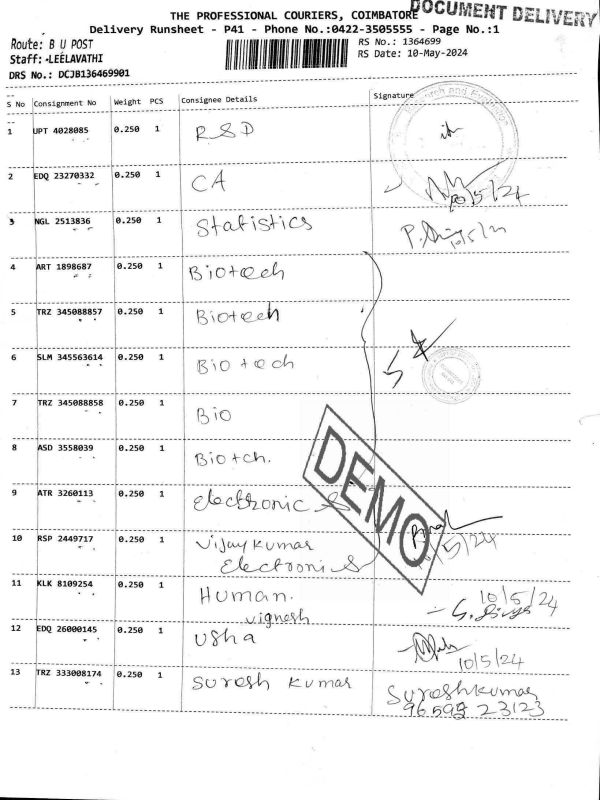 THE PROFESSIONAL COURIERS, COIMBATORE
DOCUMENT DELIVERY
Delivery Runsheet - P41 - Phone No.:0422-3505555 - Page No.:1
Route: B U POST
Staff: -LEELAVATHI
DRS No.: DCJB136469901
RS No.: 1364699
RS Date: 10-May-2024
S No Consignment No Weight PCS Consignee Details Signature
1 UPT 4028085 0.250 1 RSD
2 EDQ 23270332 0.250 1 CA 10/5/24
3 NGL 2513836 0.250 1 Statistics
4 ART 1898687 0.250 1 Biotech
5 TRZ 345088857 0.250 1 Biotech
6 SLM 345563614 0.250 1 Biotech
7 TRZ 345088858 0.250 1 Bio
8 ASD 3558039 0.250 1 Biotch.
9 ATR 3260113 0.250 1 Electronic S
10 RSP 2449717 0.250 1 Vijaykumar
Electroni S
11 KLK 8109254 0.250 1 Human. 10/5/24
Vignesh
12 EDQ 26000145 0.250 1 Usha
10/5/24
13 TRZ 333008174 0.250 1 Suresh Kumar Sureshkumar
DEMO